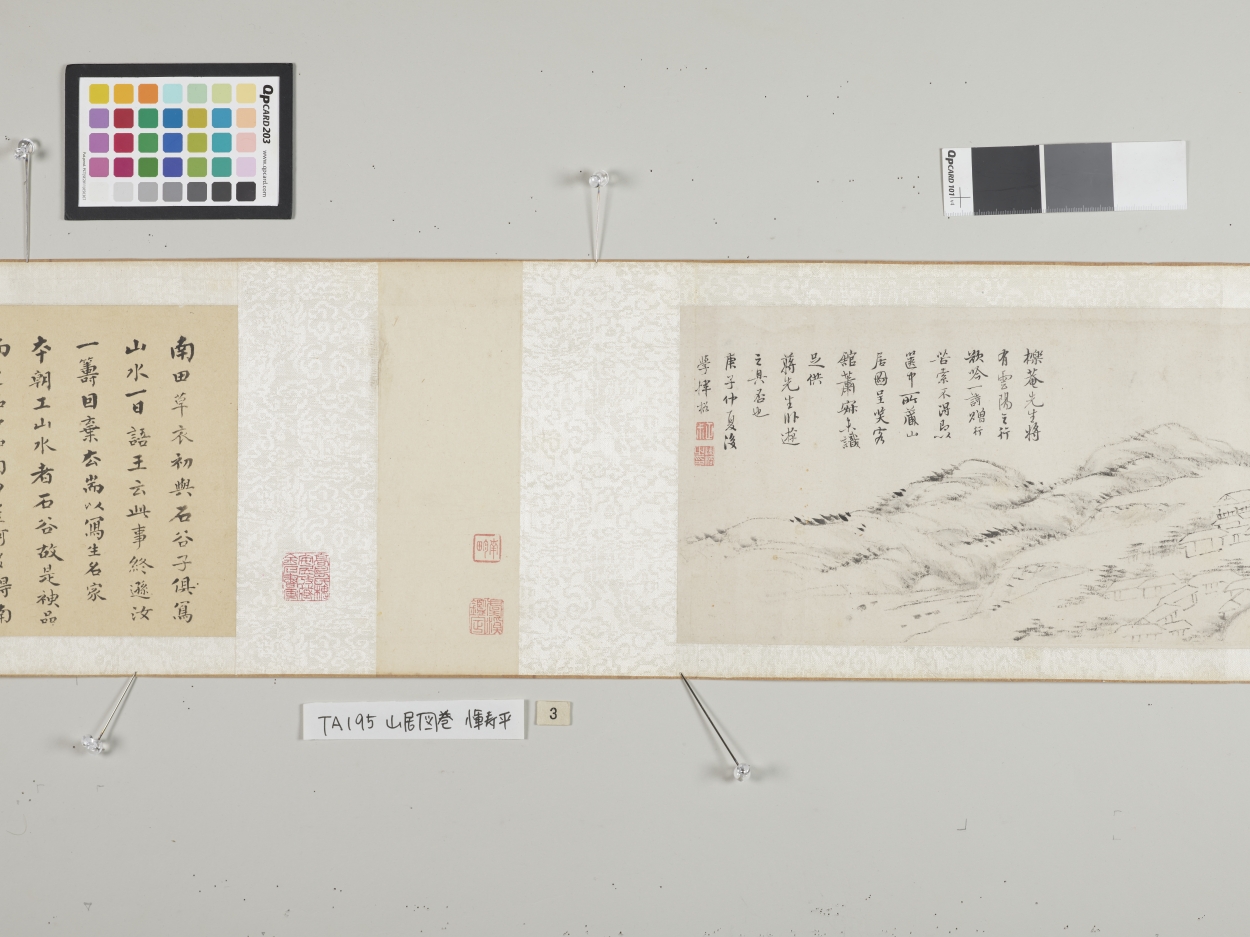 QpCARD 203
www.qpcard.com
QpCARD 101
櫟菴先生將
有雲陽之行
欲吟一詩贈行
苦索不得即以
篋中所藏山
居圖呈笑客
館蕭寂未識
足供
蔣先生臥遊
之具否也
庚子仲夏後
學惲格
南田草衣初與石谷子俱寫
山水一日語王云此事終遜汝
一籌因棄去耑以寫生名家
本朝工山水者石谷故是神品
TA195 山居図巻 惲寿平
3